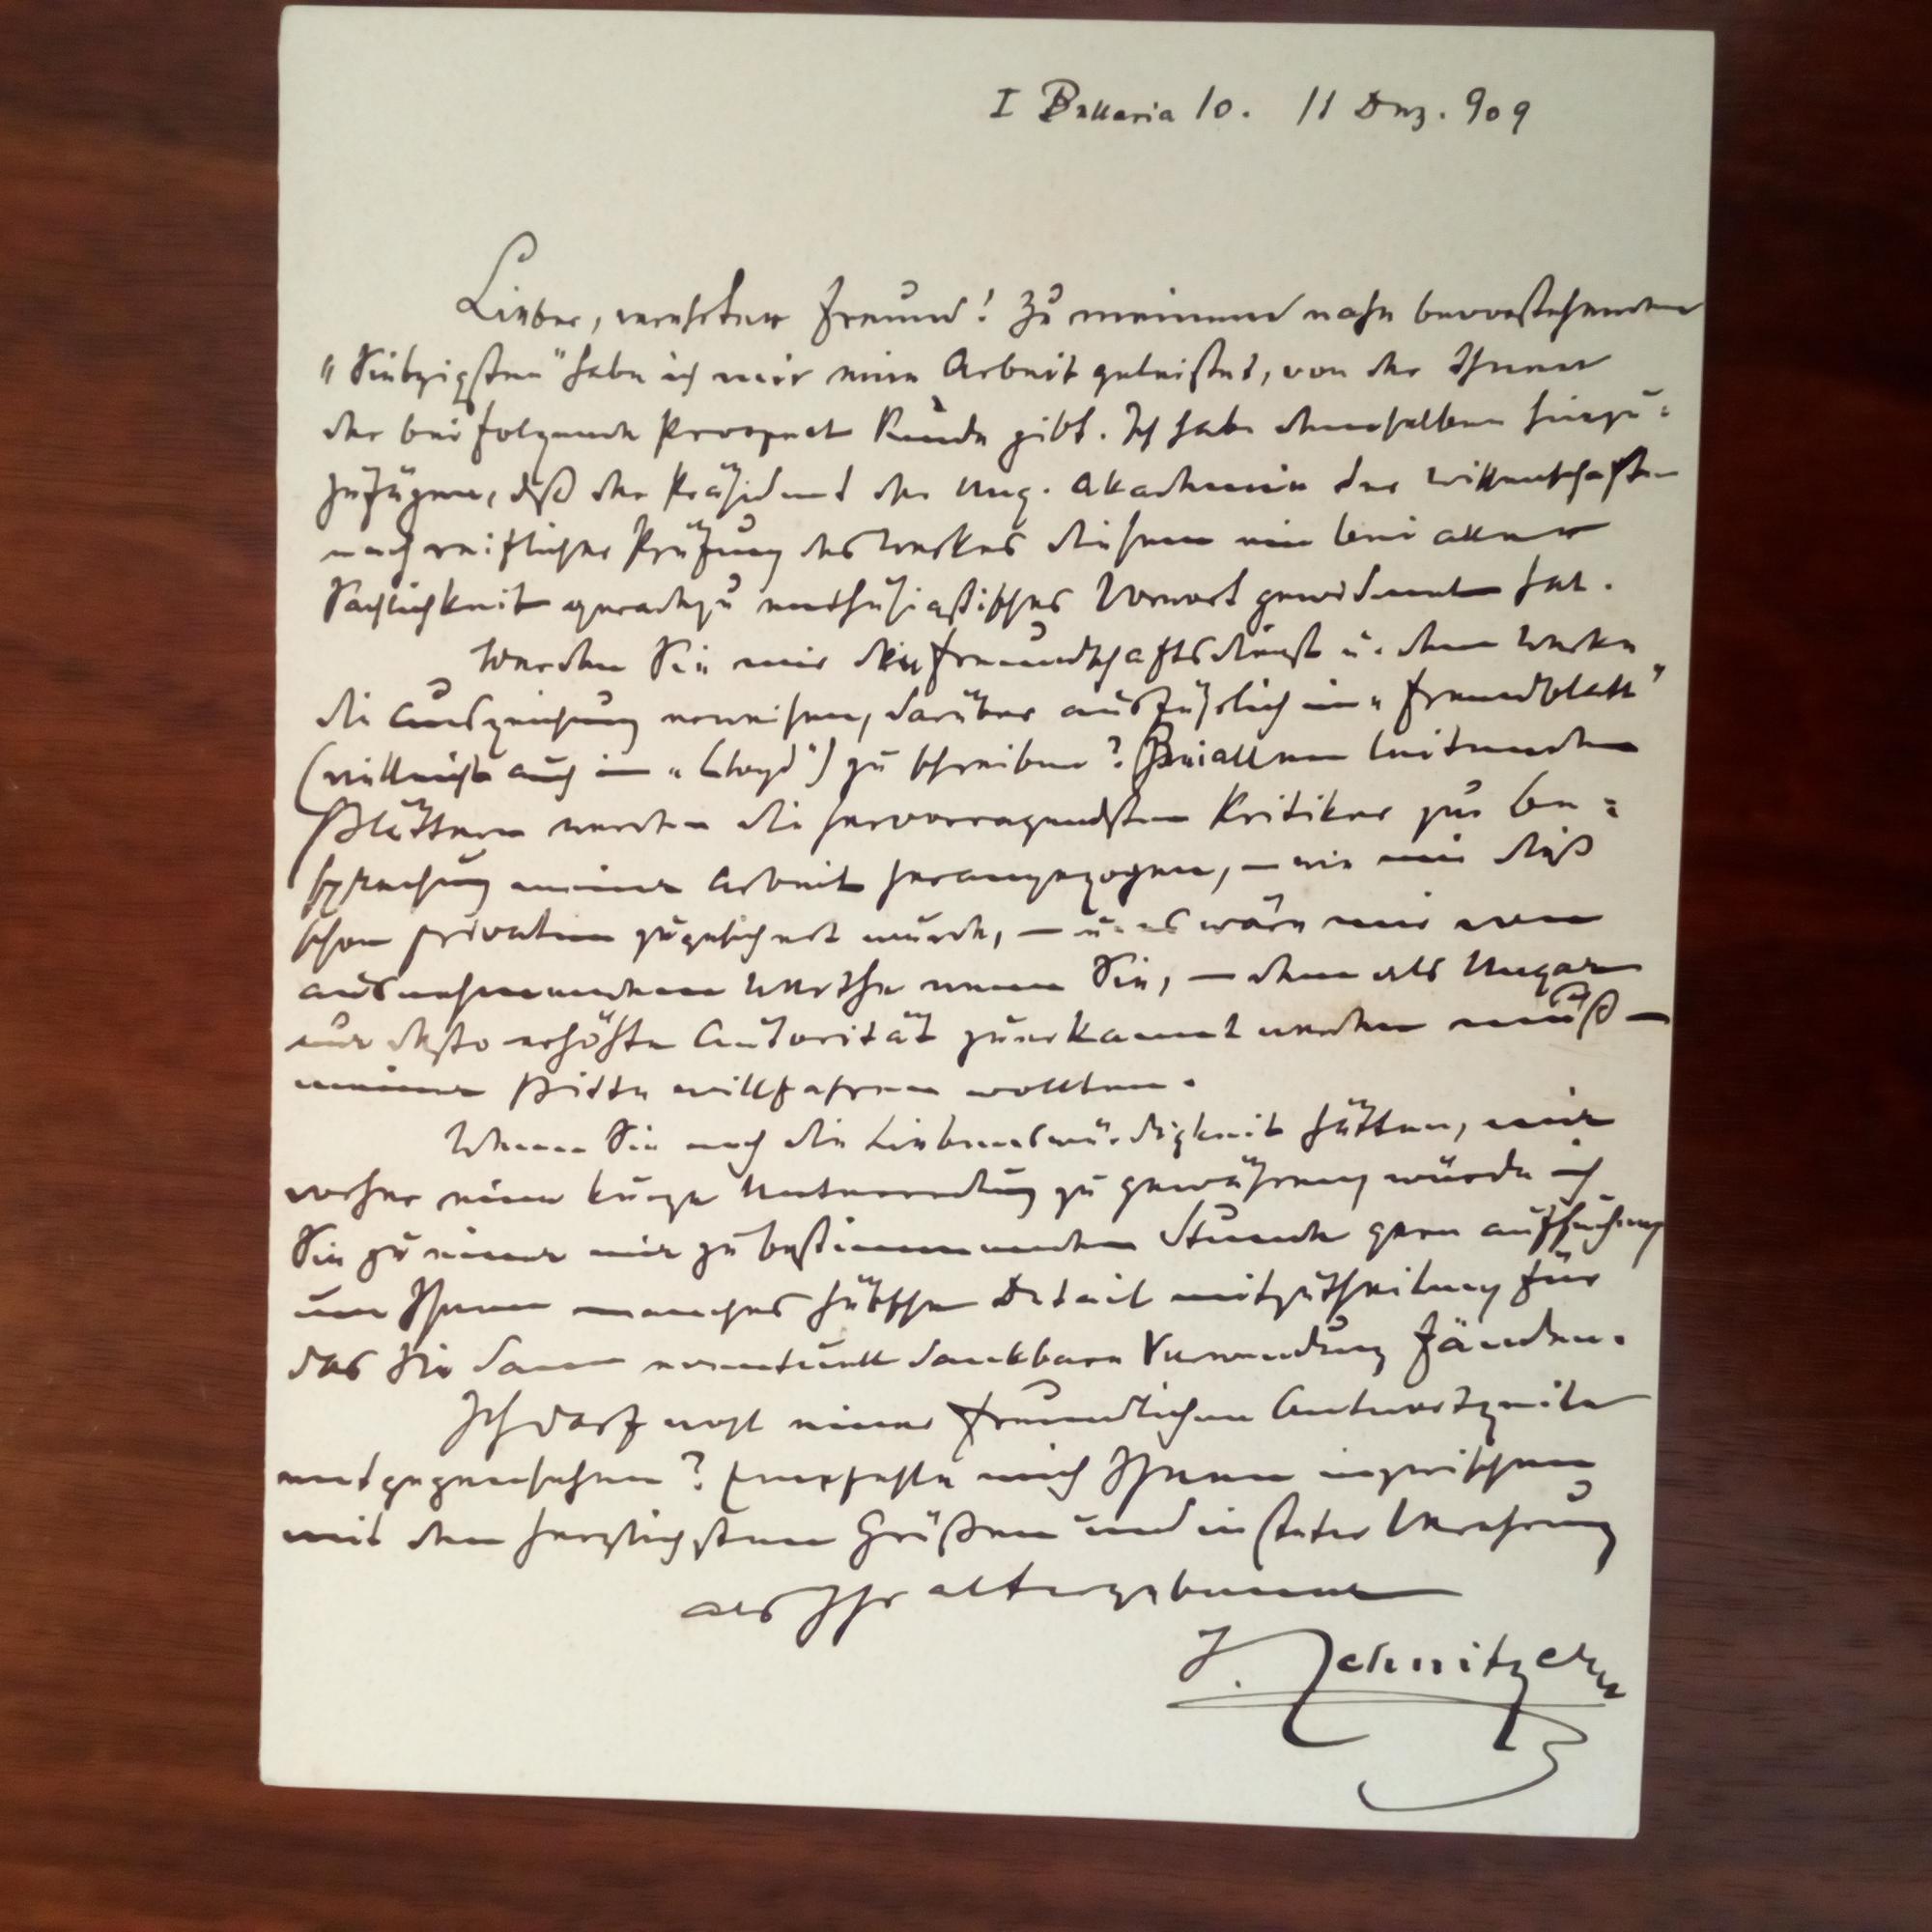 I Bellaria 10. 11 Dez. 909
Lieber, verehrter Freund! Zu meinem nahe bevorstehenden
„Siebzigsten" habe ich mir eine Arbeit geleistet, von der Ihnen
der beifolgende Prospect Kunde gibt. Ich habe demselben hinzu=
zufügen, daß der Präsident der Ung. Akademie der Wissenschaften
nach reiflicher Prüfung des Werkes diesem ein bei aller
Sachlichkeit geradezu enthusiastisches Vorwort gewidmet hat.
Werden Sie mir den Freundschaftsdienst u. dem Werke
die Auszeichnung erweisen, darüber ausführlich im „Fremdblatt"
(vielleicht auch im „Lloyd") zu schreiben? Bei allen leitenden
Blättern werden die hervorragendsten Kritiker zur Be=
sprechung meiner Arbeit herangezogen, – wie mir dieß
schon privatim zugesichert wurde, – u. es wäre mir von
ausnehmendem Werthe wenn Sie, – dem als Ungar
nur desto erhöhte Autorität zuerkannt werden muß –
meiner Bitte willfahren wollten.
Wenn Sie noch die Liebenswürdigkeit hätten, mir
vorher eine kurze Unterredung zu gewähren, würde ich
Sie zu einer mir zu bestimmenden Stunde gern aufsuchen,
um Ihnen manches hübsche Detail mitzutheilen, für
das Sie dann eventuell dankbare Verwendung fänden.
Ich darf wohl einer freundlichen Antwortzeile
entgegensehen? Empfehle mich Ihnen inzwischen
mit den herzlichsten Grüßen und in steter Verehrung
als Ihr altergebener
J. Schnitzer